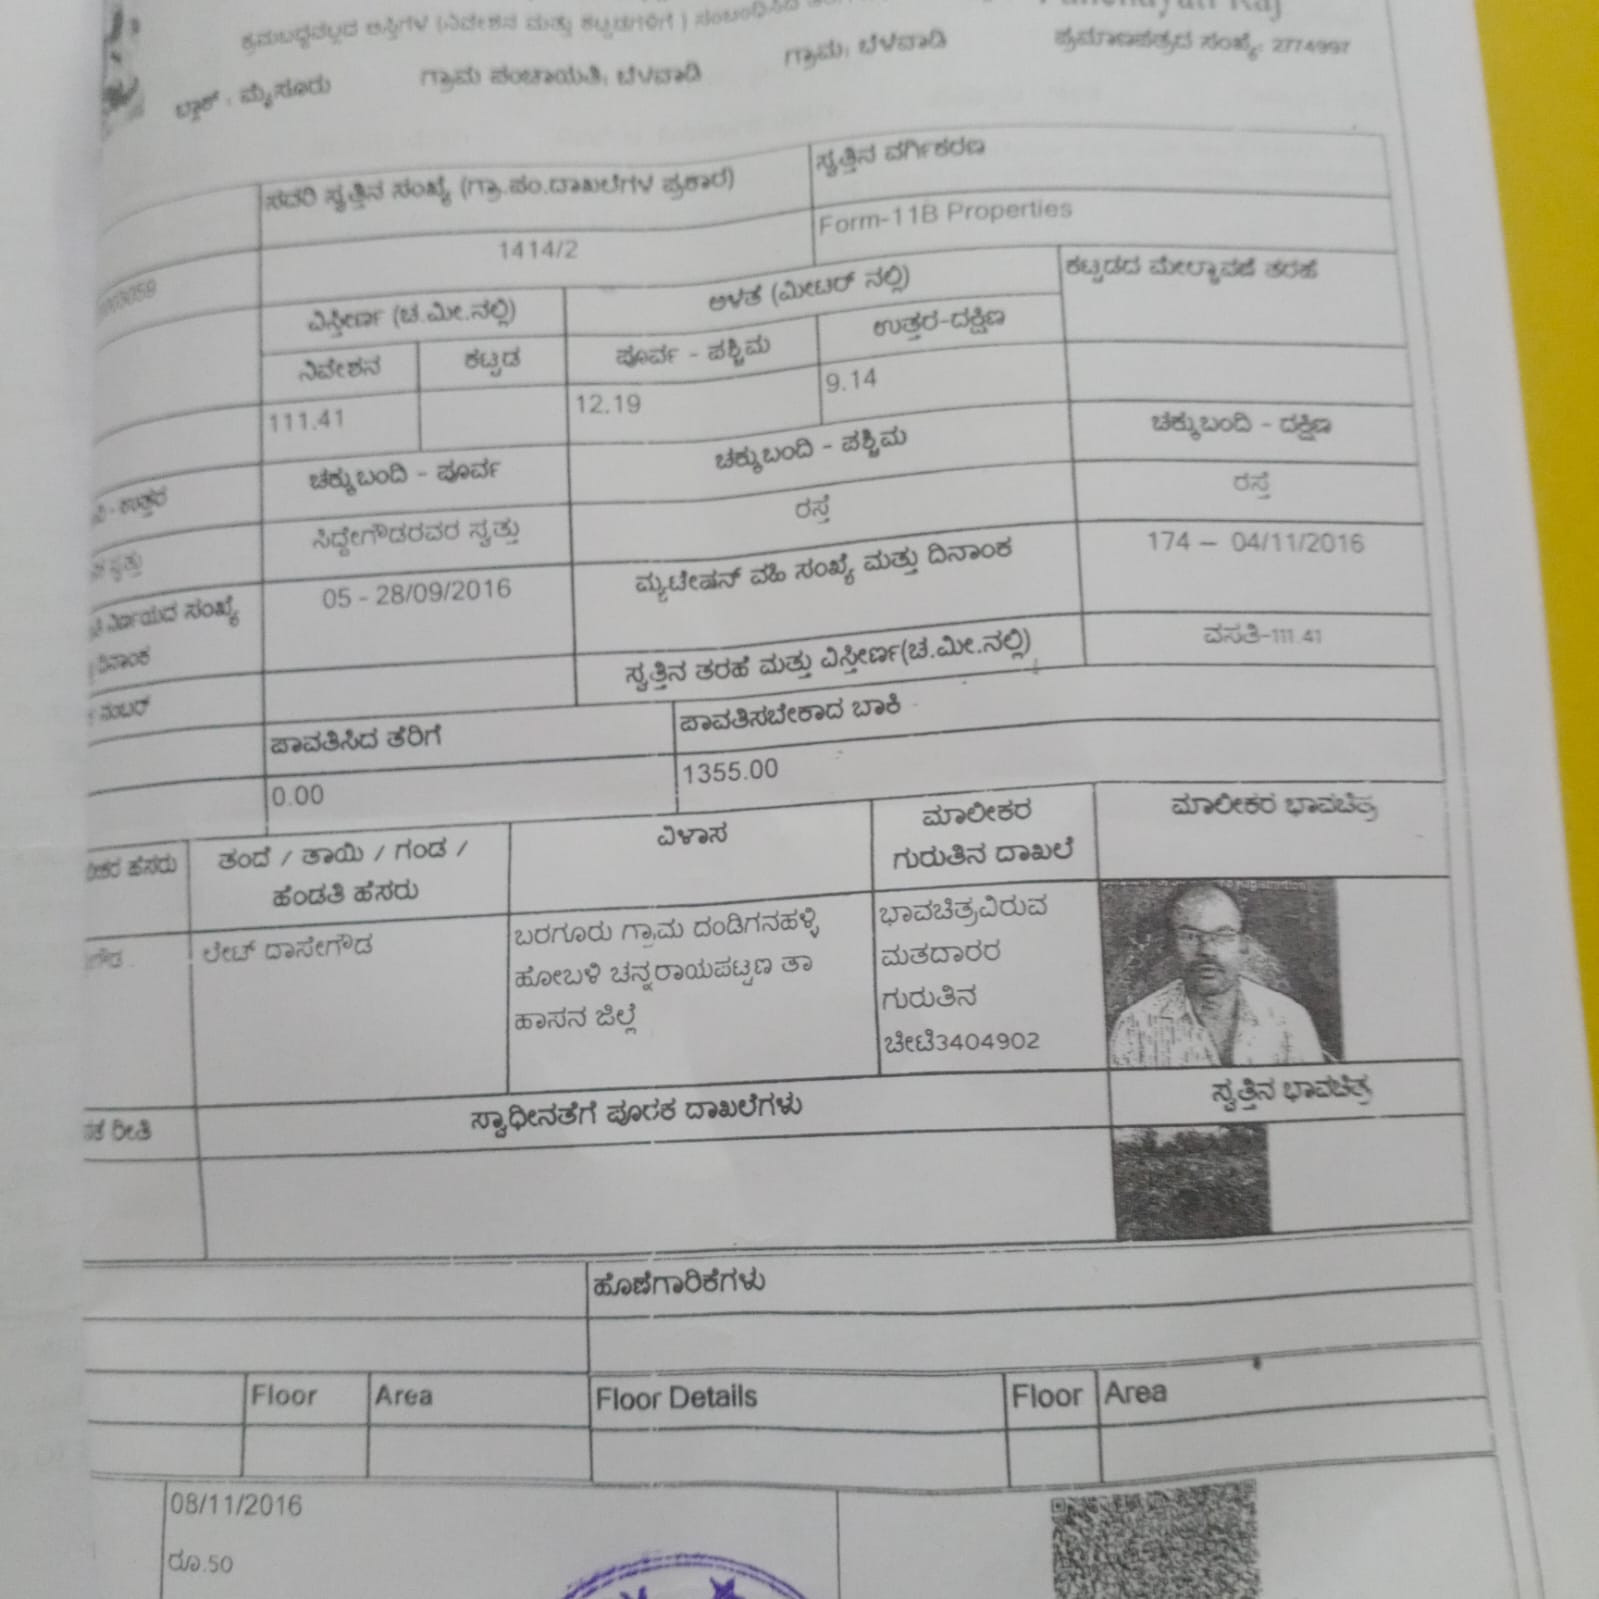 ಕ್ರಮಬದ್ಧವಲ್ಲದ ಆಸ್ತಿಗಳ (ನಿವೇಶನ ಮತ್ತು ಕಟ್ಟಡಗಳಿಗೆ) ಸಂಬಂಧಿಸಿದ
ಬ್ಲಾಕ್ : ಮೈಸೂರು ಗ್ರಾಮ ಪಂಚಾಯತಿ: ಬೆಳವಾಡಿ ಗ್ರಾಮ: ಬೆಳವಾಡಿ ಪ್ರಮಾಣಪತ್ರದ ಸಂಖ್ಯೆ: 2774997
ಸದರಿ ಸ್ವತ್ತಿನ ಸಂಖ್ಯೆ (ಗ್ರಾ.ಪಂ.ದಾಖಲೆಗಳ ಪ್ರಕಾರ) ಸ್ವತ್ತಿನ ವರ್ಗೀಕರಣ
1414/2 Form-11B Properties
ವಿಸ್ತೀರ್ಣ (ಚ.ಮೀ.ನಲ್ಲಿ) ಅಳತೆ (ಮೀಟರ್ ನಲ್ಲಿ) ಕಟ್ಟಡದ ಮೇಲ್ಚಾವಣಿ ತರಹೆ
ನಿವೇಶನ ಕಟ್ಟಡ ಪೂರ್ವ - ಪಶ್ಚಿಮ ಉತ್ತರ-ದಕ್ಷಿಣ
111.41 12.19 9.14
- ಉತ್ತರ ಚಕ್ಕುಬಂದಿ - ಪೂರ್ವ ಚಕ್ಕುಬಂದಿ - ಪಶ್ಚಿಮ ಚಕ್ಕುಬಂದಿ - ದಕ್ಷಿಣ
ಸ್ವತ್ತು ಸಿದ್ದೇಗೌಡರವರ ಸ್ವತ್ತು ರಸ್ತೆ ರಸ್ತೆ
ನಿರ್ಣಯದ ಸಂಖ್ಯೆ 05 - 28/09/2016 ಮ್ಯುಟೇಷನ್ ವಹಿ ಸಂಖ್ಯೆ ಮತ್ತು ದಿನಾಂಕ 174 – 04/11/2016
ದಿನಾಂಕ
ನಂಬರ್ ಸ್ವತ್ತಿನ ತರಹೆ ಮತ್ತು ವಿಸ್ತೀರ್ಣ(ಚ.ಮೀ.ನಲ್ಲಿ) ವಸತಿ-111.41
ಪಾವತಿಸಿದ ತೆರಿಗೆ ಪಾವತಿಸಬೇಕಾದ ಬಾಕಿ
0.00 1355.00
ಹೆಸರು ತಂದೆ / ತಾಯಿ / ಗಂಡ / ವಿಳಾಸ ಮಾಲೀಕರ ಮಾಲೀಕರ ಭಾವಚಿತ್ರ
ಹೆಂಡತಿ ಹೆಸರು ಗುರುತಿನ ದಾಖಲೆ
ಲೇಟ್ ದಾಸೇಗೌಡ ಬರಗೂರು ಗ್ರಾಮ ದಂಡಿಗನಹಳ್ಳಿ ಭಾವಚಿತ್ರವಿರುವ
ಹೋಬಳಿ ಚನ್ನರಾಯಪಟ್ಟಣ ತಾ ಮತದಾರರ
ಹಾಸನ ಜಿಲ್ಲೆ ಗುರುತಿನ
ಚೀಟಿ3404902
ರೀತಿ ಸ್ವಾಧೀನತೆಗೆ ಪೂರಕ ದಾಖಲೆಗಳು ಸ್ವತ್ತಿನ ಭಾವಚಿತ್ರ
ಹೊಣೆಗಾರಿಕೆಗಳು
Floor Area Floor Details Floor Area
08/11/2016
ರೂ.50